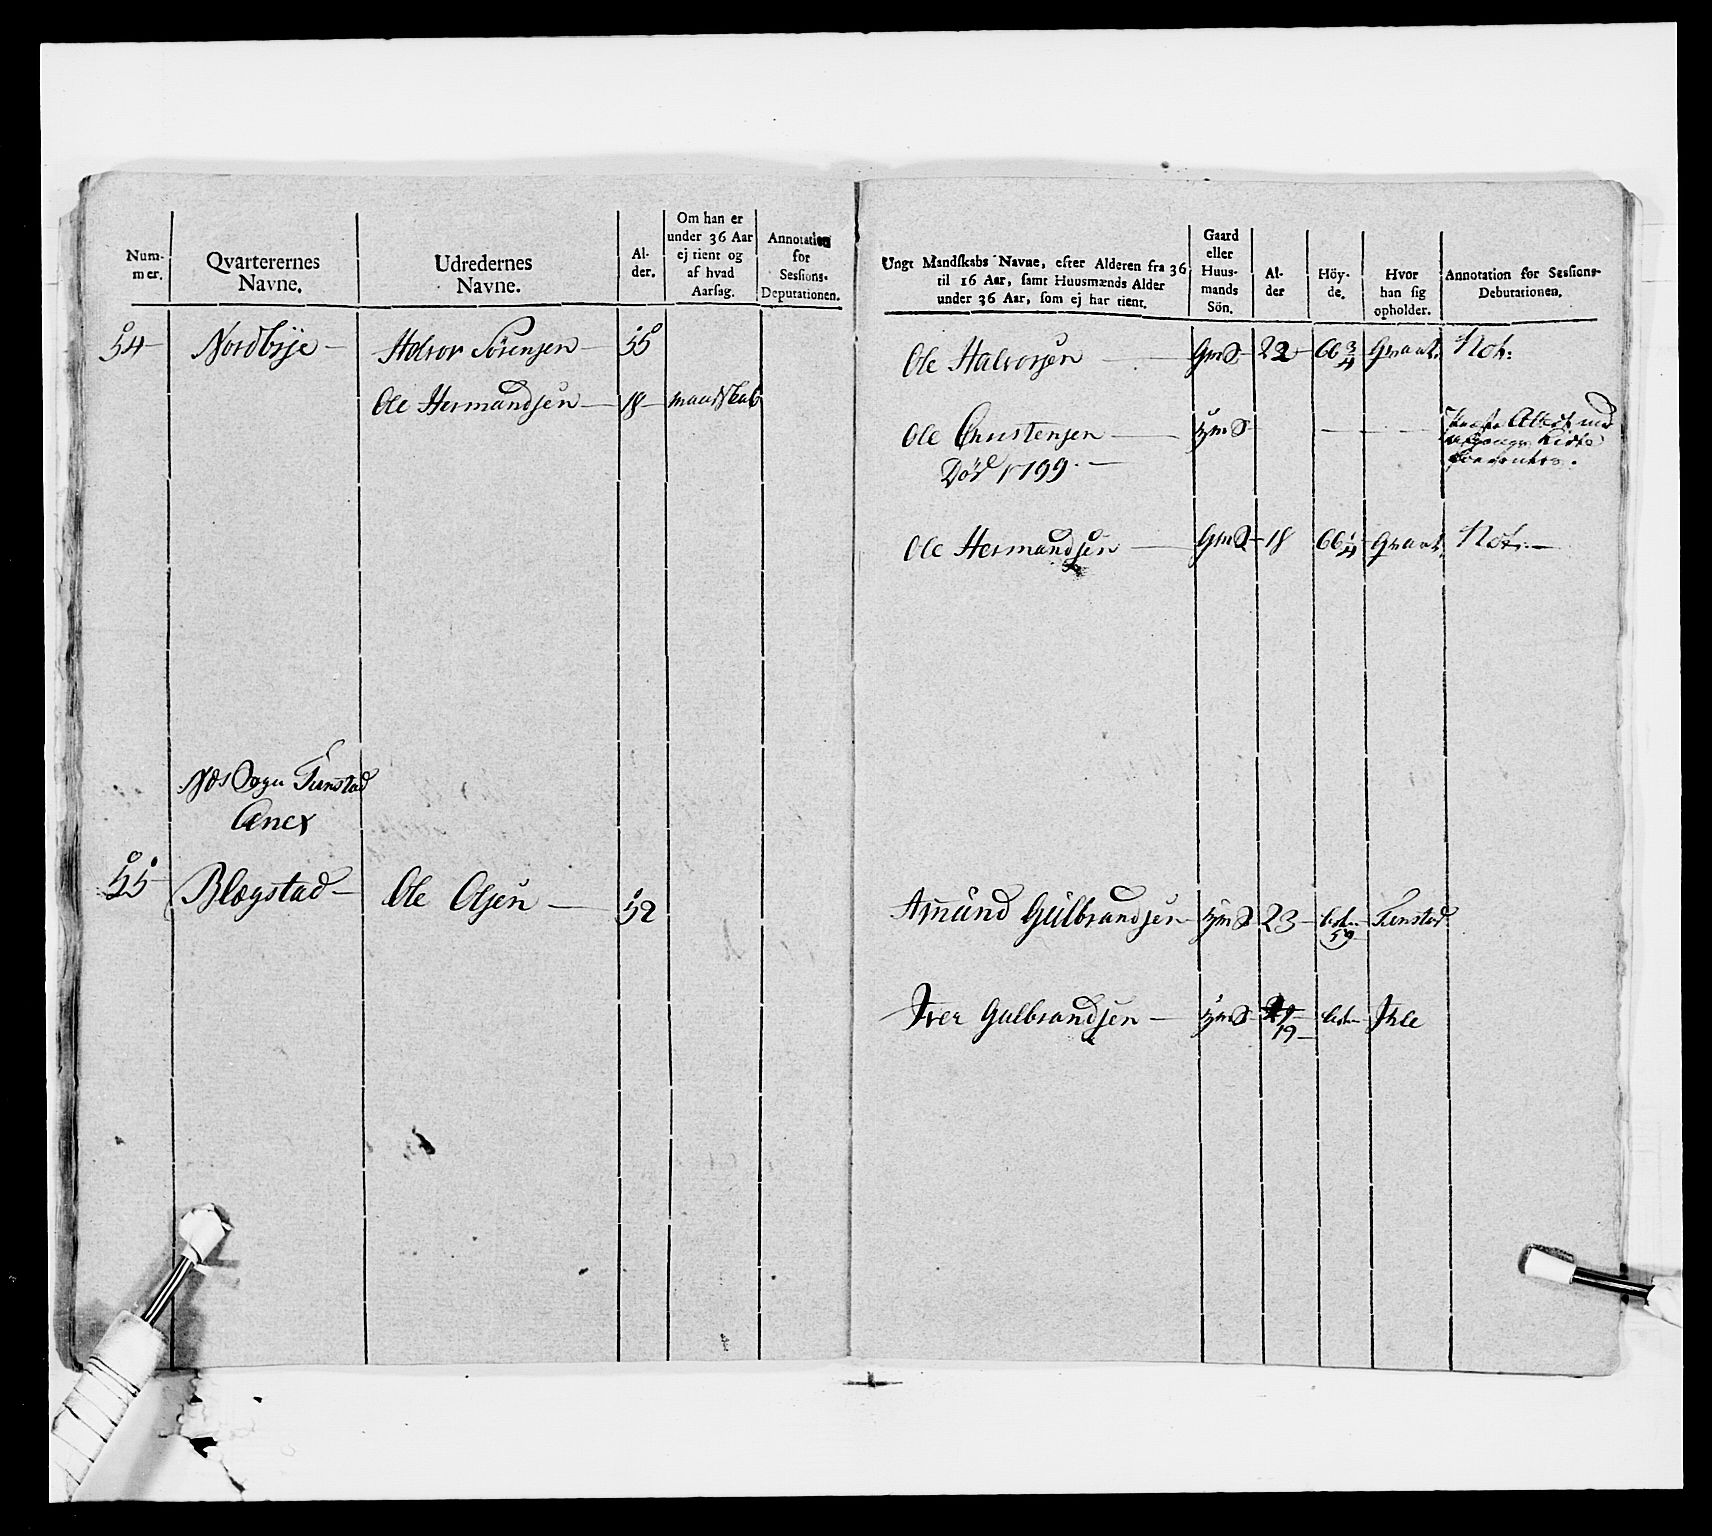 Num-
mer.
Qvarterernes
Navne.
Udredernes
Navne.
Al-
der.
Om han er
under 36 Aar
ej tient og
af hvad
Aarsag.
Annotation
for
Sessions-
Deputationen.
54 Nordbye Halvor Sörensen 55
Ole Hermandsen 18 mandskab
Næs Sogn Fenstad
Anex
55 Blægstad Ole Olsen 52
Ungt Mandskabs Navne, efter Alderen fra 36
til 16 Aar, samt Huusmænds Alder
under 36 Aar, som ej har tient.
Gaard
eller
Huus-
mands
Sön.
Al-
der
Höy-
de.
Hvor
han sig
opholder.
Annotation for Sessions-
Debutationen.
Ole Halvorsen GmS 22 66 3/4 Qvart. Not:
Ole Christensen HmS
Död 1799
Ole Hermandsen GmS 18 66 1/4 Qvart. Not:
Amund Gulbrandsen HmS 23 59 Fenstad
Iver Gulbrandsen HmS 19 Ihle